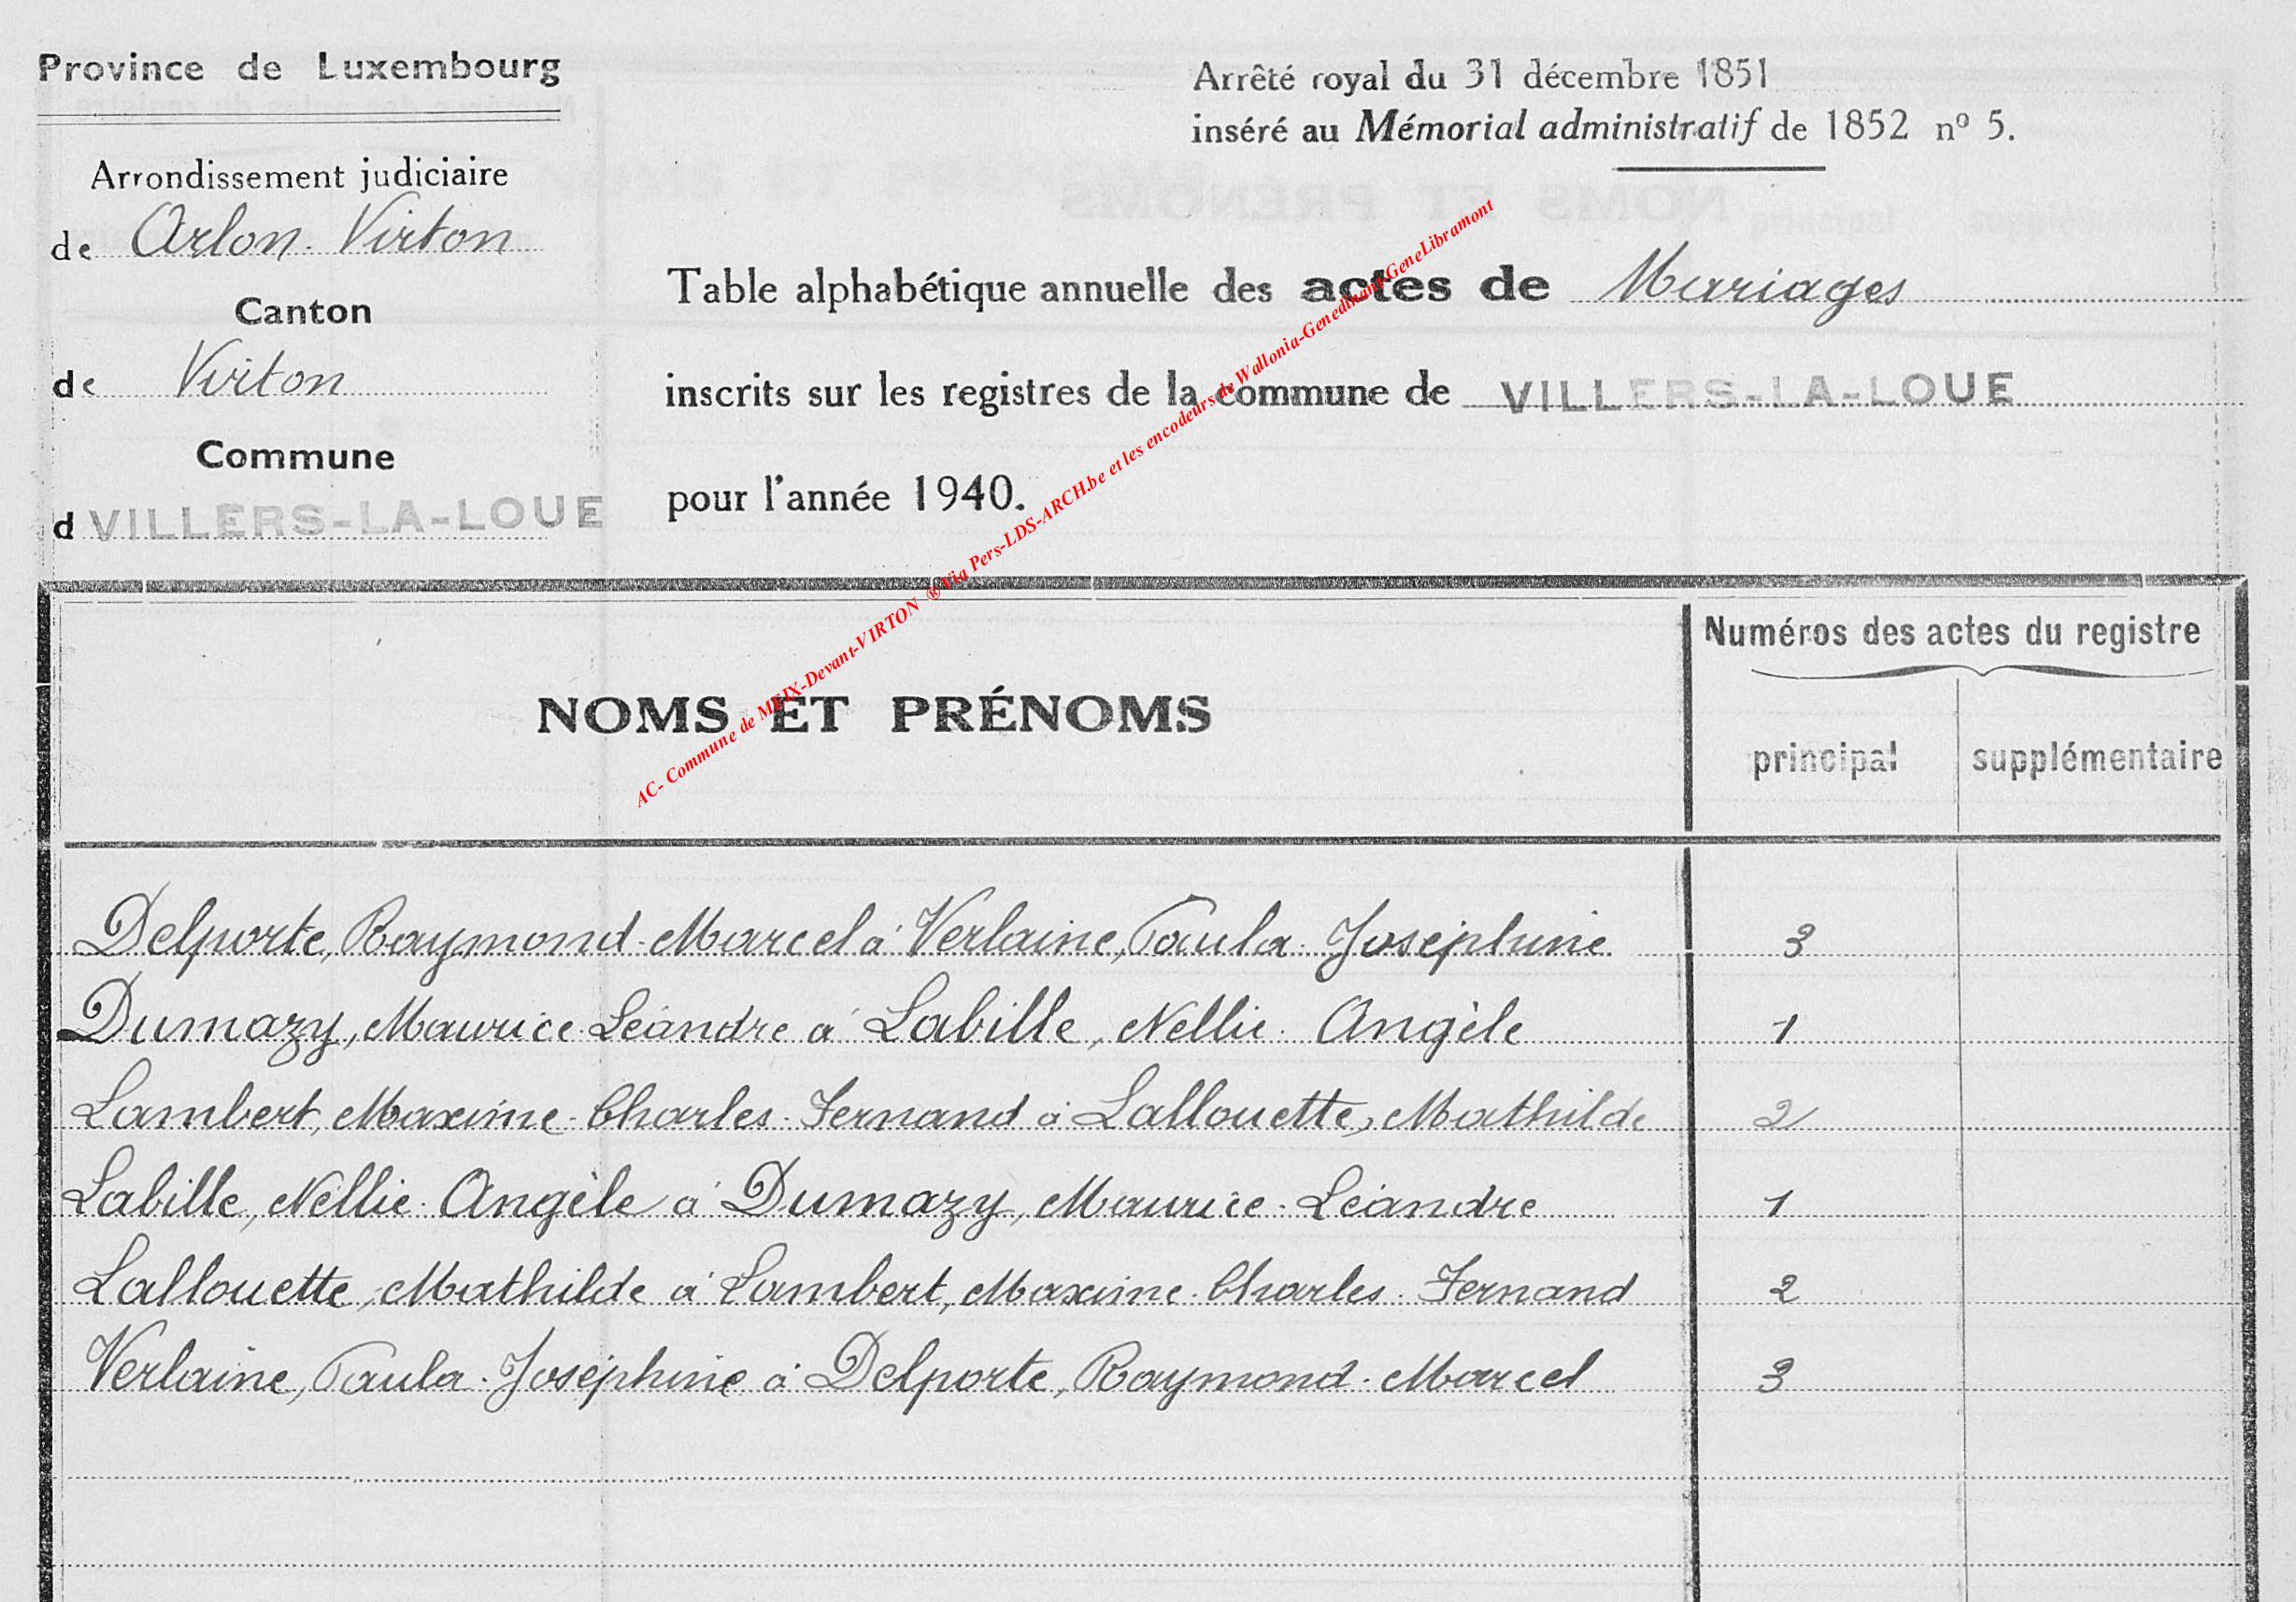 Province de Luxembourg
Arrondissement judiciaire
de Arlon-Virton
Canton
de Virton
Commune
d VILLERS-LA-LOUE
Arrêté royal du 31 décembre 1851
inséré au Mémorial administratif de 1852 nº 5.
Table alphabétique annuelle des actes de Mariages
inscrits sur les registres de la commune de VILLERS-LA-LOUE
pour l'année 1940.
AC- Commune de MEIX-Devant-VIRTON ® Via Pers-LDS-ARCH.be et les encodeurs de Wallonia-Genedinant-GeneLibramont
NOMS ET PRÉNOMS
Numéros des actes du registre
principal supplémentaire
Delporte, Raymond-Marcel à Verlaine, Paula-Joséphine 3
Dumazy, Maurice-Léandre à Labille, Nellie-Angèle 1
Lambert, Maxime-Charles-Fernand à Lallouette, Mathilde 2
Labille, Nellie-Angèle à Dumazy, Maurice-Léandre 1
Lallouette, Mathilde à Lambert, Maxime-Charles-Fernand 2
Verlaine, Paula-Joséphine à Delporte, Raymond-Marcel 3